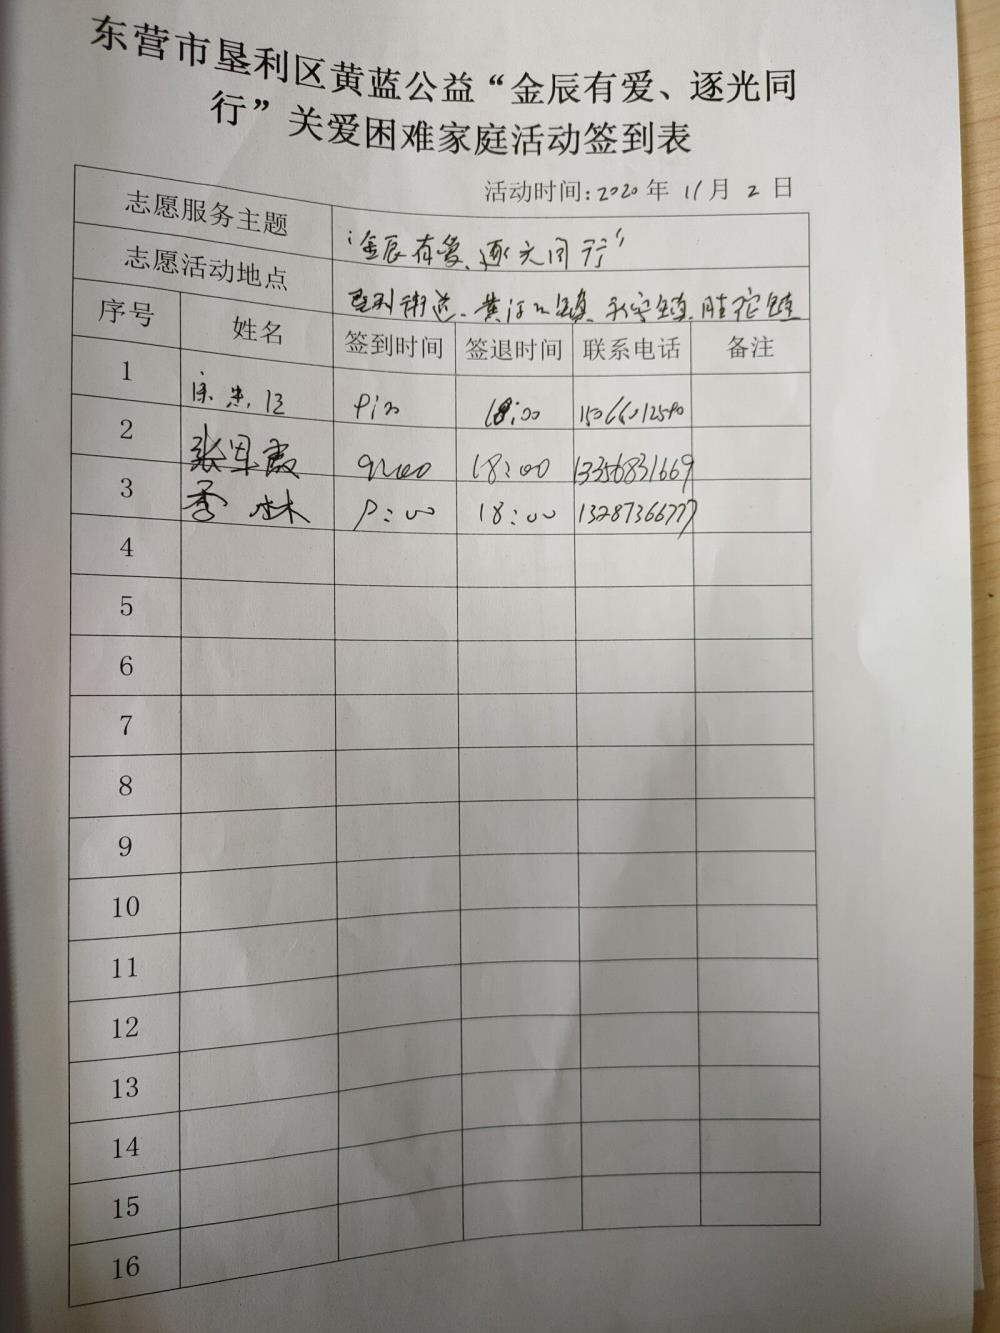 东营市垦利区黄蓝公益“金辰有爱、逐光同
行”关爱困难家庭活动签到表
活动时间:2020年 11月 2 日
志愿服务主题 “金辰有爱、逐光同行”
志愿活动地点 垦利街道、黄河口镇、永安镇、胜坨镇
序号 姓名 签到时间 签退时间 联系电话 备注
1 18:00
2 张 霞 9:00 18:00 13356831669
3 李 林 9:00 18:00 13287366777
4
5
6
7
8
9
10
11
12
13
14
15
16